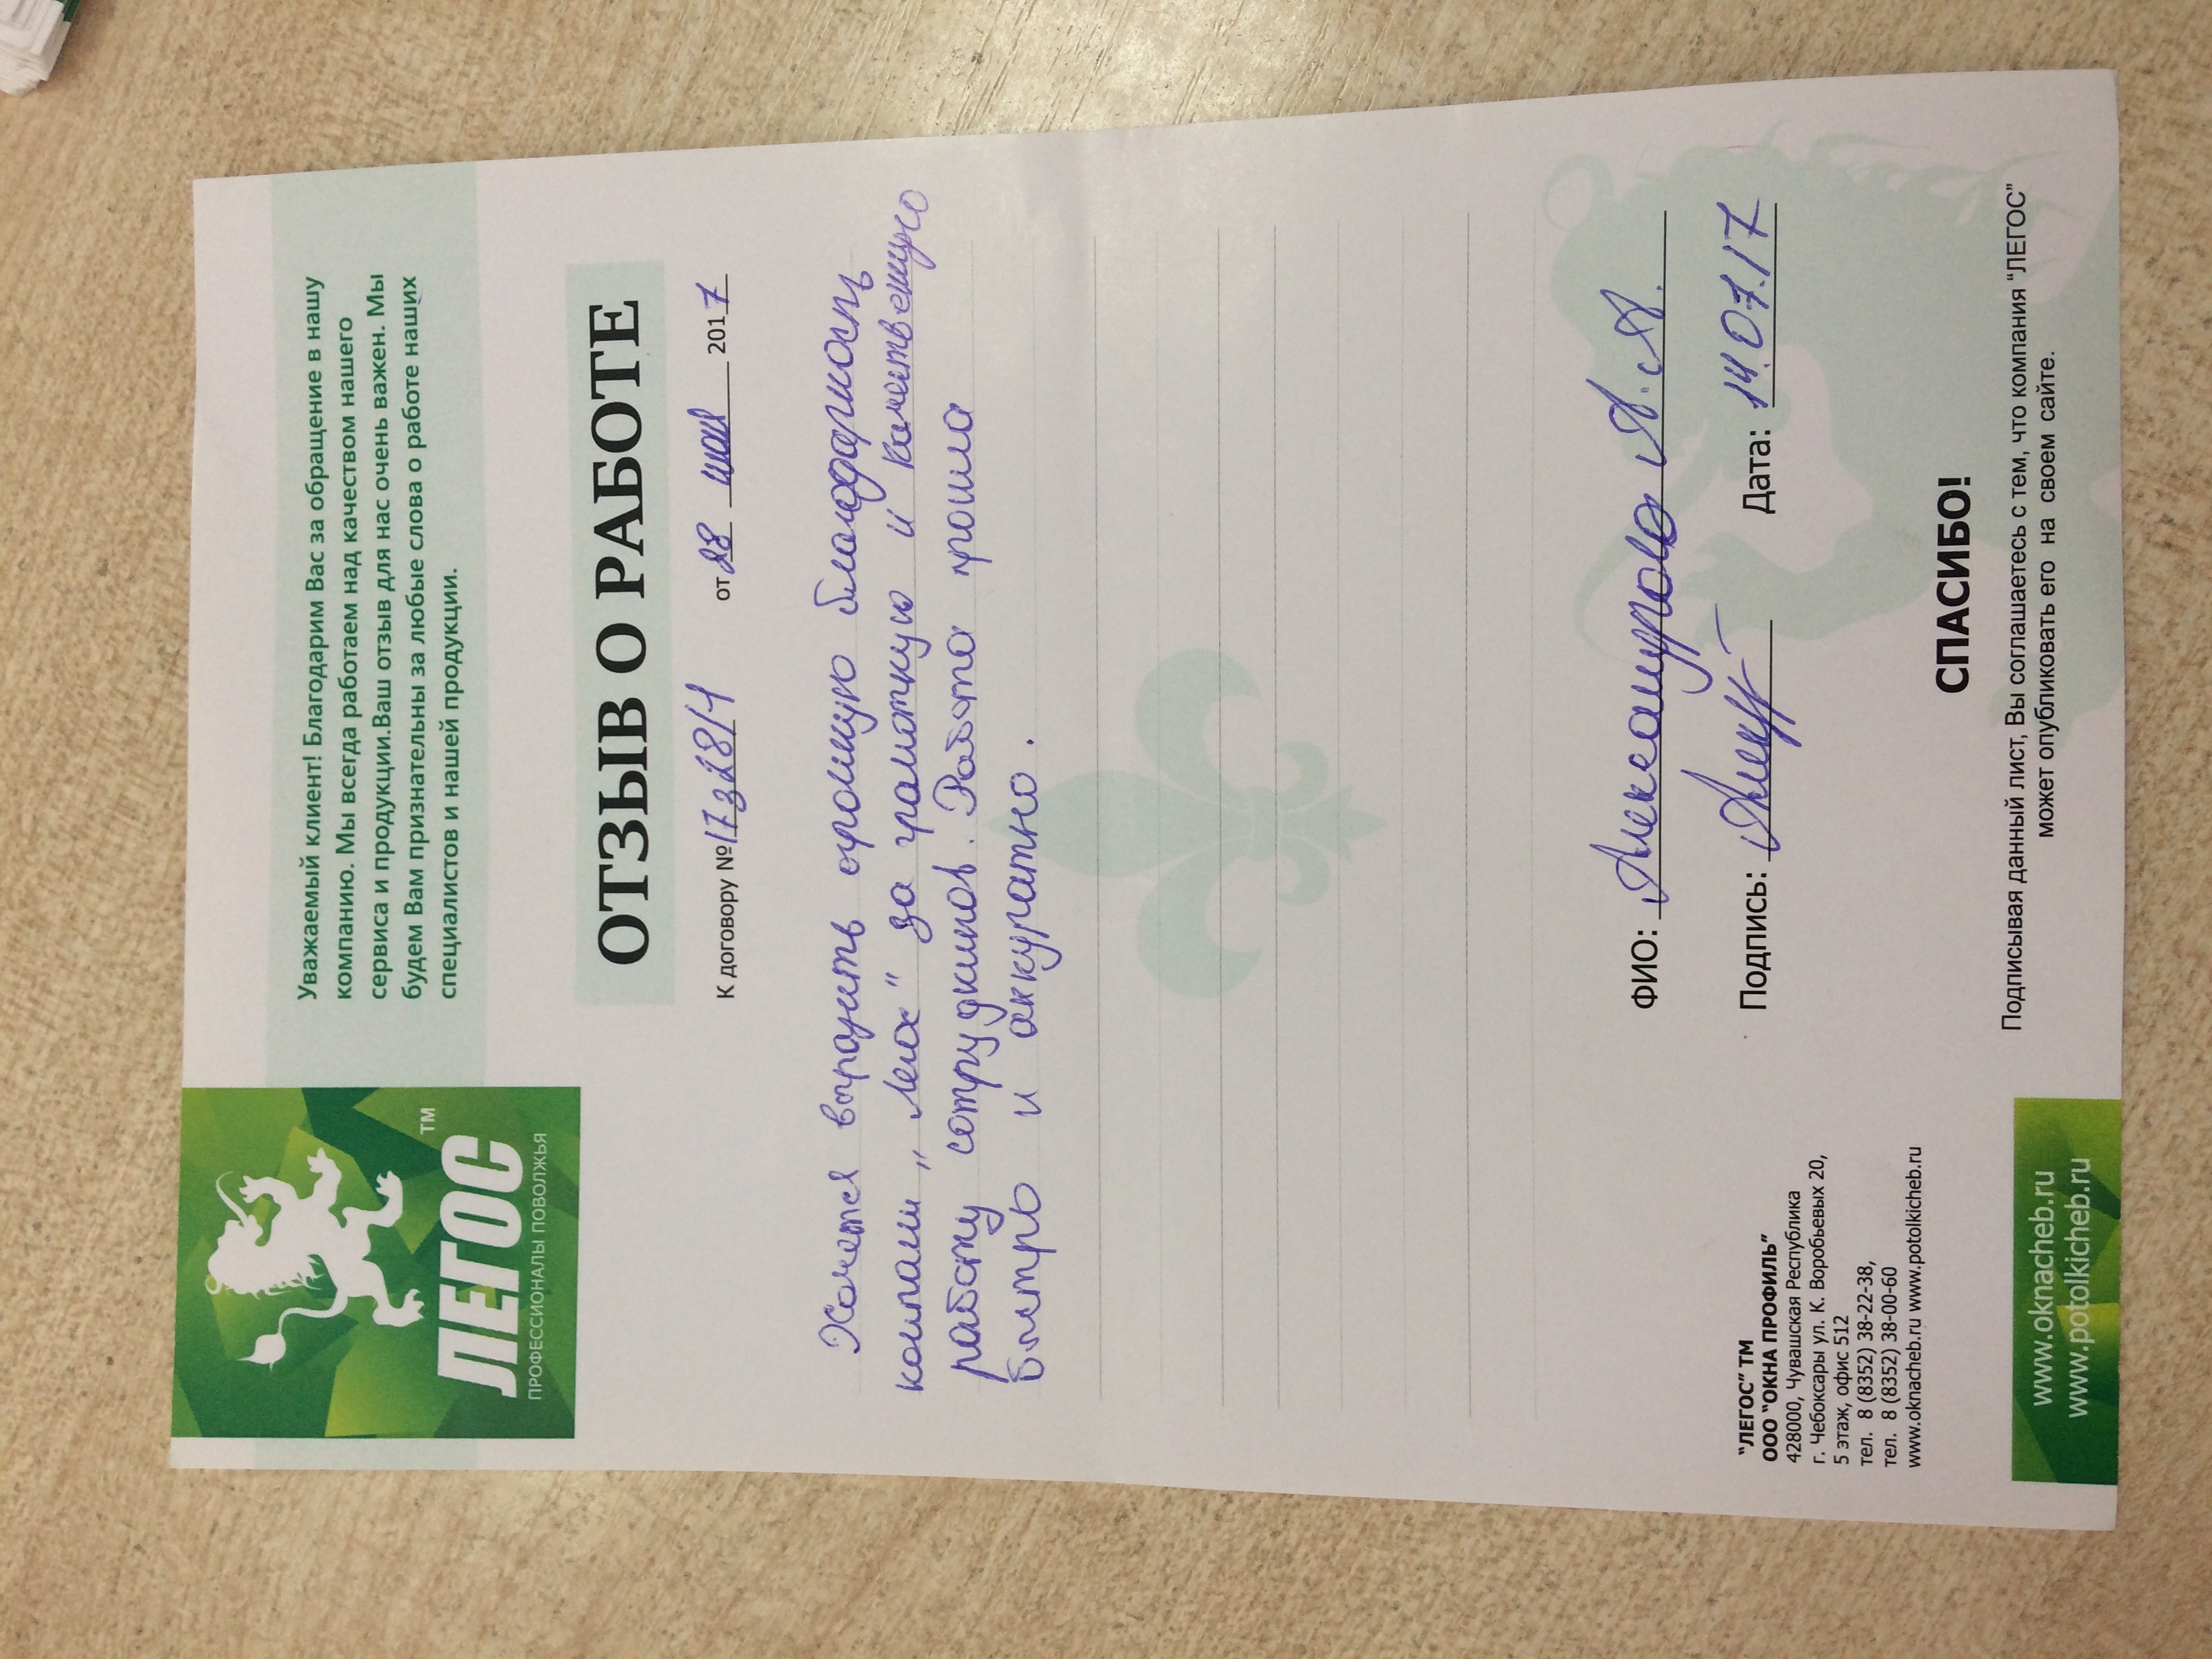 ЛЕГОС™
ПРОФЕССИОНАЛЫ ПОВОЛЖЬЯ
Уважаемый клиент! Благодарим Вас за обращение в нашу
компанию. Мы всегда работаем над качеством нашего
сервиса и продукции.Ваш отзыв для нас очень важен. Мы
будем Вам признательны за любые слова о работе наших
специалистов и нашей продукции.
ОТЗЫВ О РАБОТЕ
К договору № 17з28/1 от 28 мая 2017
Хочется выразить огромную благодарность
компании „Легос" за грамотную и качественную
работу сотрудников. Работа прошла
быстро и аккуратно.
ФИО: Александрова А. А.
Подпись: Дата: 14.07.17
"ЛЕГОС" ТМ
ООО "ОКНА ПРОФИЛЬ"
428000, Чувашская Республика
г. Чебоксары ул. К. Воробьевых 20,
5 этаж, офис 512
тел. 8 (8352) 38-22-38,
тел. 8 (8352) 38-00-60
www.oknacheb.ru www.potolkicheb.ru
СПАСИБО!
Подписывая данный лист, Вы соглашаетесь с тем, что компания "ЛЕГОС"
может опубликовать его на своем сайте.
www.oknacheb.ru
www.potolkicheb.ru